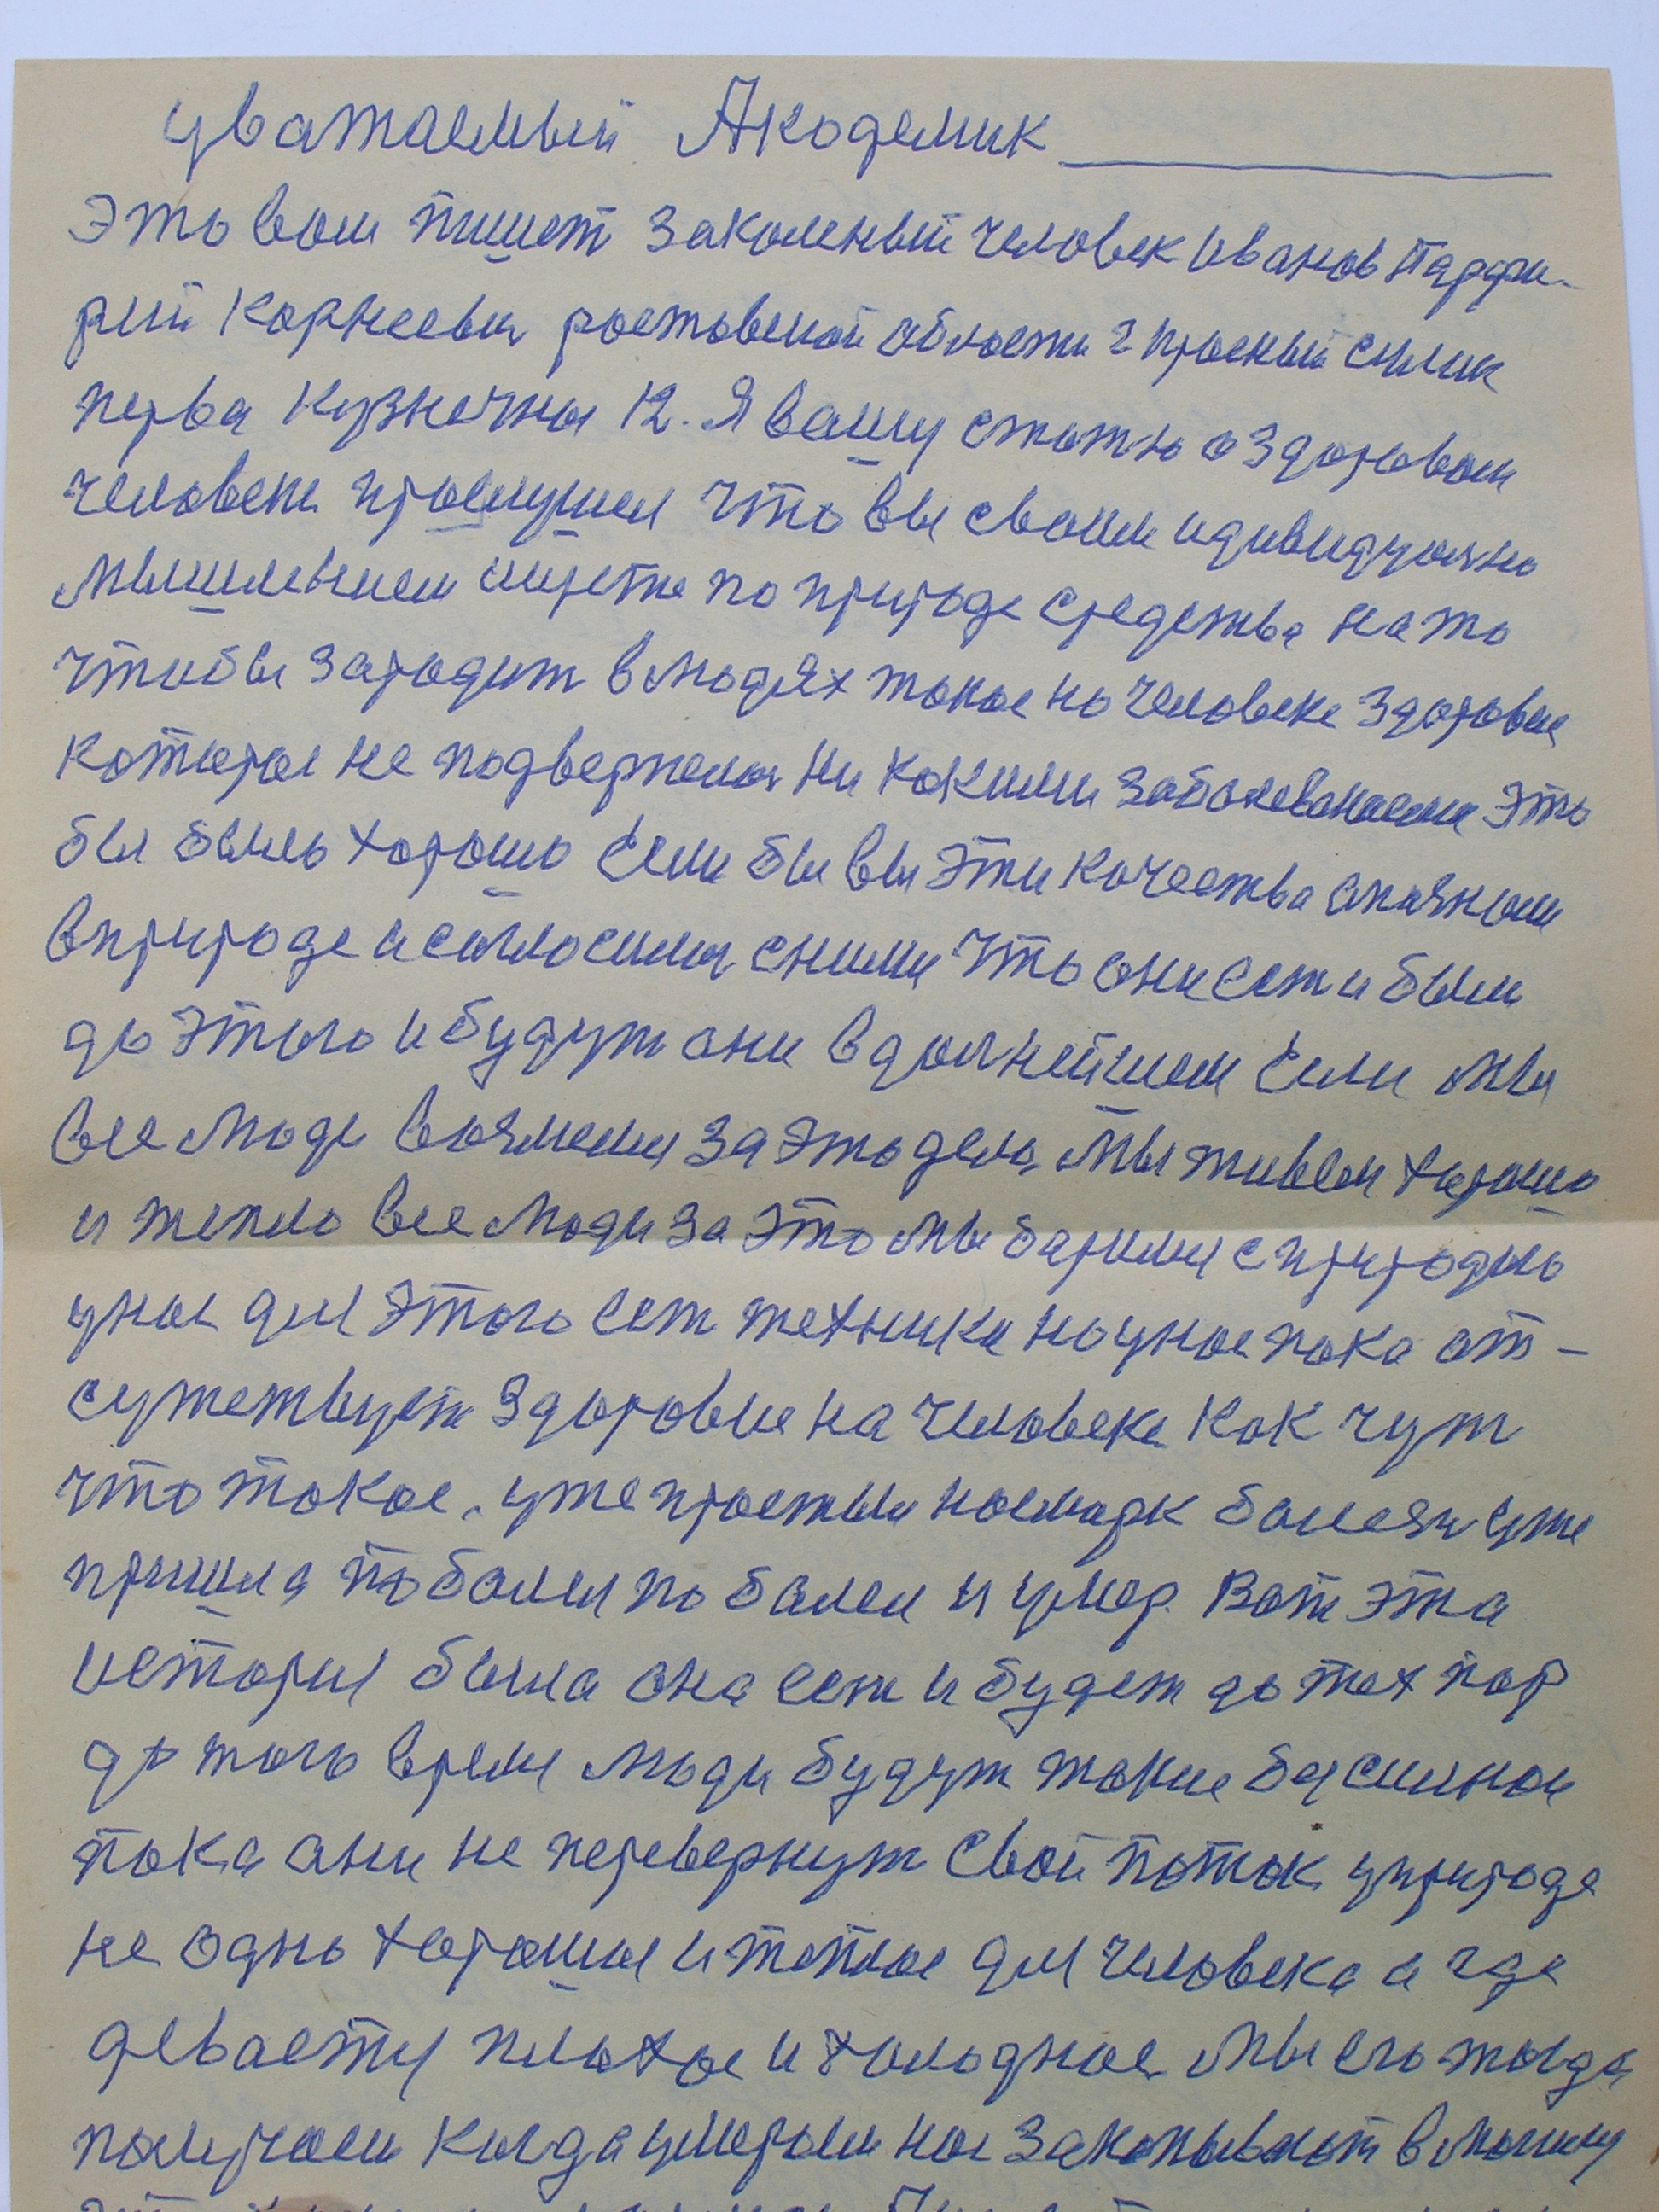 уважаемый Академик
Это вам пишет закаленый человек Иванов Парфи-
рий Корнеевич ростовской области г красный сулин
перва Кузнечная 12. Я вашу статю о здоровом
человеке прослушал что вы своим идивидуально
мышлением ищете по природе средства на то
чтобы зародит в людях такое на человеке здоровие
которое не подвержена ни какими заболеваниями это
бы было хорошо Если бы вы эти качества
в природе и согласились сними что они сет и были
до этого и будут они вдальнейшем если мы
все люди возмемся за это дела, Мы живем харашо
и тепло все люди за это мы баримся с природаю
унас для этого ест техника но унас пока от-
сутствует здоровие на человека как чут
что такое, уже простыл насмарк болезнь уже
пришла по болел по болел и умер. Вот эта
история была она ест и будет до тех пор
до того время люди будут такие
пока они не перевернут свой поток уприроде
не одно харошие и теплое для человека а где
девается плохое и холодное Мы его тогда
получаем когда умераем нас закапывают в могилу